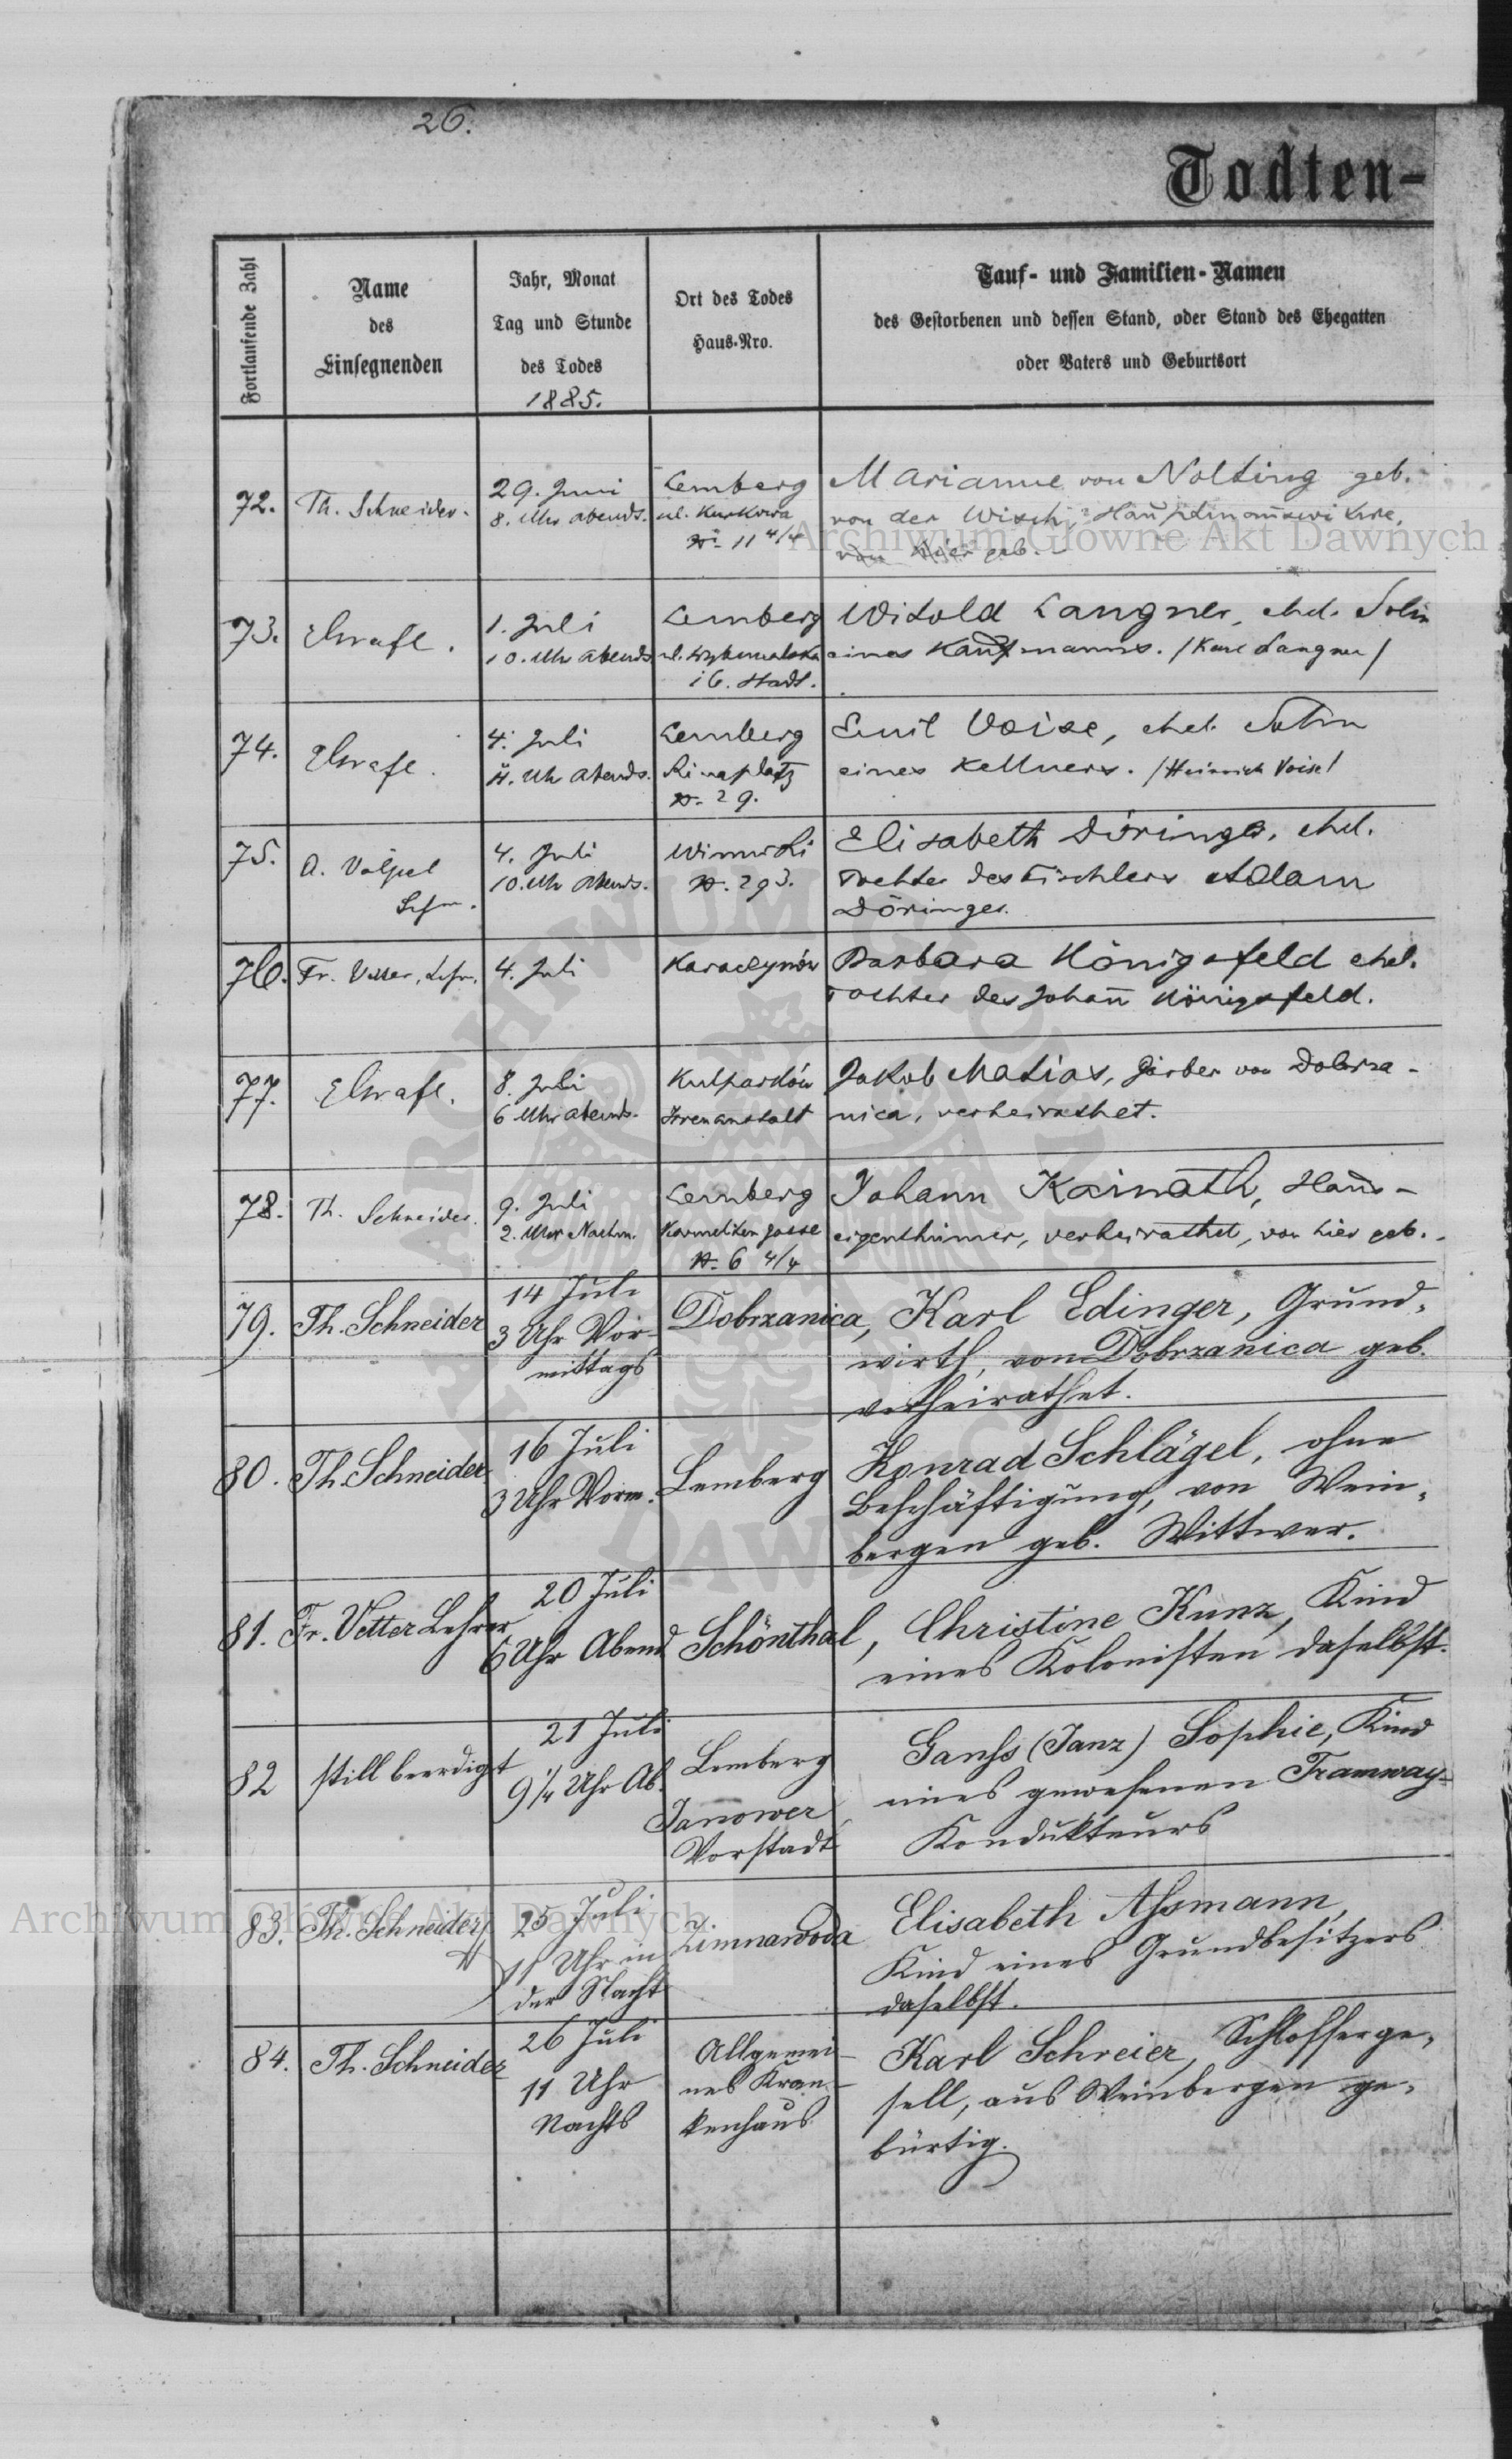 26.
Todten-
Fortlaufende Zahl
Name
des
Einsegnenden
Jahr, Monat
Tag und Stunde
des Todes
1885.
Ort des Todes
Haus-Nro.
Tauf- und Familien-Namen
des Gestorbenen und dessen Stand, oder Stand des Ehegatten
oder Vaters und Geburtsort
72.
Th. Schneider.
29. Juni
8. Uhr abends.
Lemberg
ul. Kurkowa
N. 11 4/4
Marianne von Nolting geb.
von der Wisch, Hauptmannswitwe,
von hier geb.
73.
1. Juli
10. Uhr abends
Lemberg
Stadt.
Witold Langner, ehel. Sohn
eines Kaufmanns. /Karl Langner/
74.
4. Juli
Uhr abends.
Lemberg
N. 29.
Emil Voise, ehel. Sohn
eines Kellners. /Heinrich Voise/
75.
A. Völpel
4. Juli
10. Uhr abends.
Winniki
N. 293.
Elisabeth Döringer, ehel.
Tochter des Tischlers Adam
Döringer.
76.
Fr. Vetter, Lehr.
4. Juli
Karaczynów
Barbara Königsfeld ehel.
Tochter des Johann Königsfeld.
77.
8. Juli
6 Uhr abends.
Kulparków
Irrenanstalt
Jakob Matias, Färber von Dobrza-
nica, verheirathet.
78.
Th. Schneider.
9. Juli
2. Uhr Nachm.
Lemberg
Karmeliten gasse
N. 6 4/4
Johann Kainath, Haus-
eigenthümer, verheirathet, von hier geb.
79.
Th. Schneider
14 Juli
3 Uhr Vor-
mittags
Dobrzanica,
Karl Edinger, Grund-
wirth, von Dobrzanica geb.
verheirathet.
80.
Th. Schneider
16 Juli
3 Uhr Vorm.
Lemberg
Konrad Schlägel, ohne
Beschäftigung, von Wein-
bergen geb. Wittwer.
81.
Fr. Vetter Lehrer
20 Juli
6 Uhr Abend
Schönthal,
Christine Kunz, Kind
eines Kolonisten daselbst.
82
still beerdigt
21 Juli
9 1/4 Uhr Ab.
Lemberg
Janower
Vorstadt
Ganss (Janz) Sophie, Kind
eines gewesenen Tramway-
Kondukteurs
83.
Th. Schneider
25 Juli
11 Uhr in
der Nacht
Zimnawoda
Elisabeth Assmann,
Kind eines Grundbesitzers
daselbst.
84.
Th. Schneider
26 Juli
11 Uhr
Nachts
Allgemei-
nes Kran-
kenhaus
Karl Schreier, Schlosserge-
sell, aus Weinbergen ge-
bürtig.
Archiwum Główne Akt Dawnych
Archiwum Główne Akt Dawnych